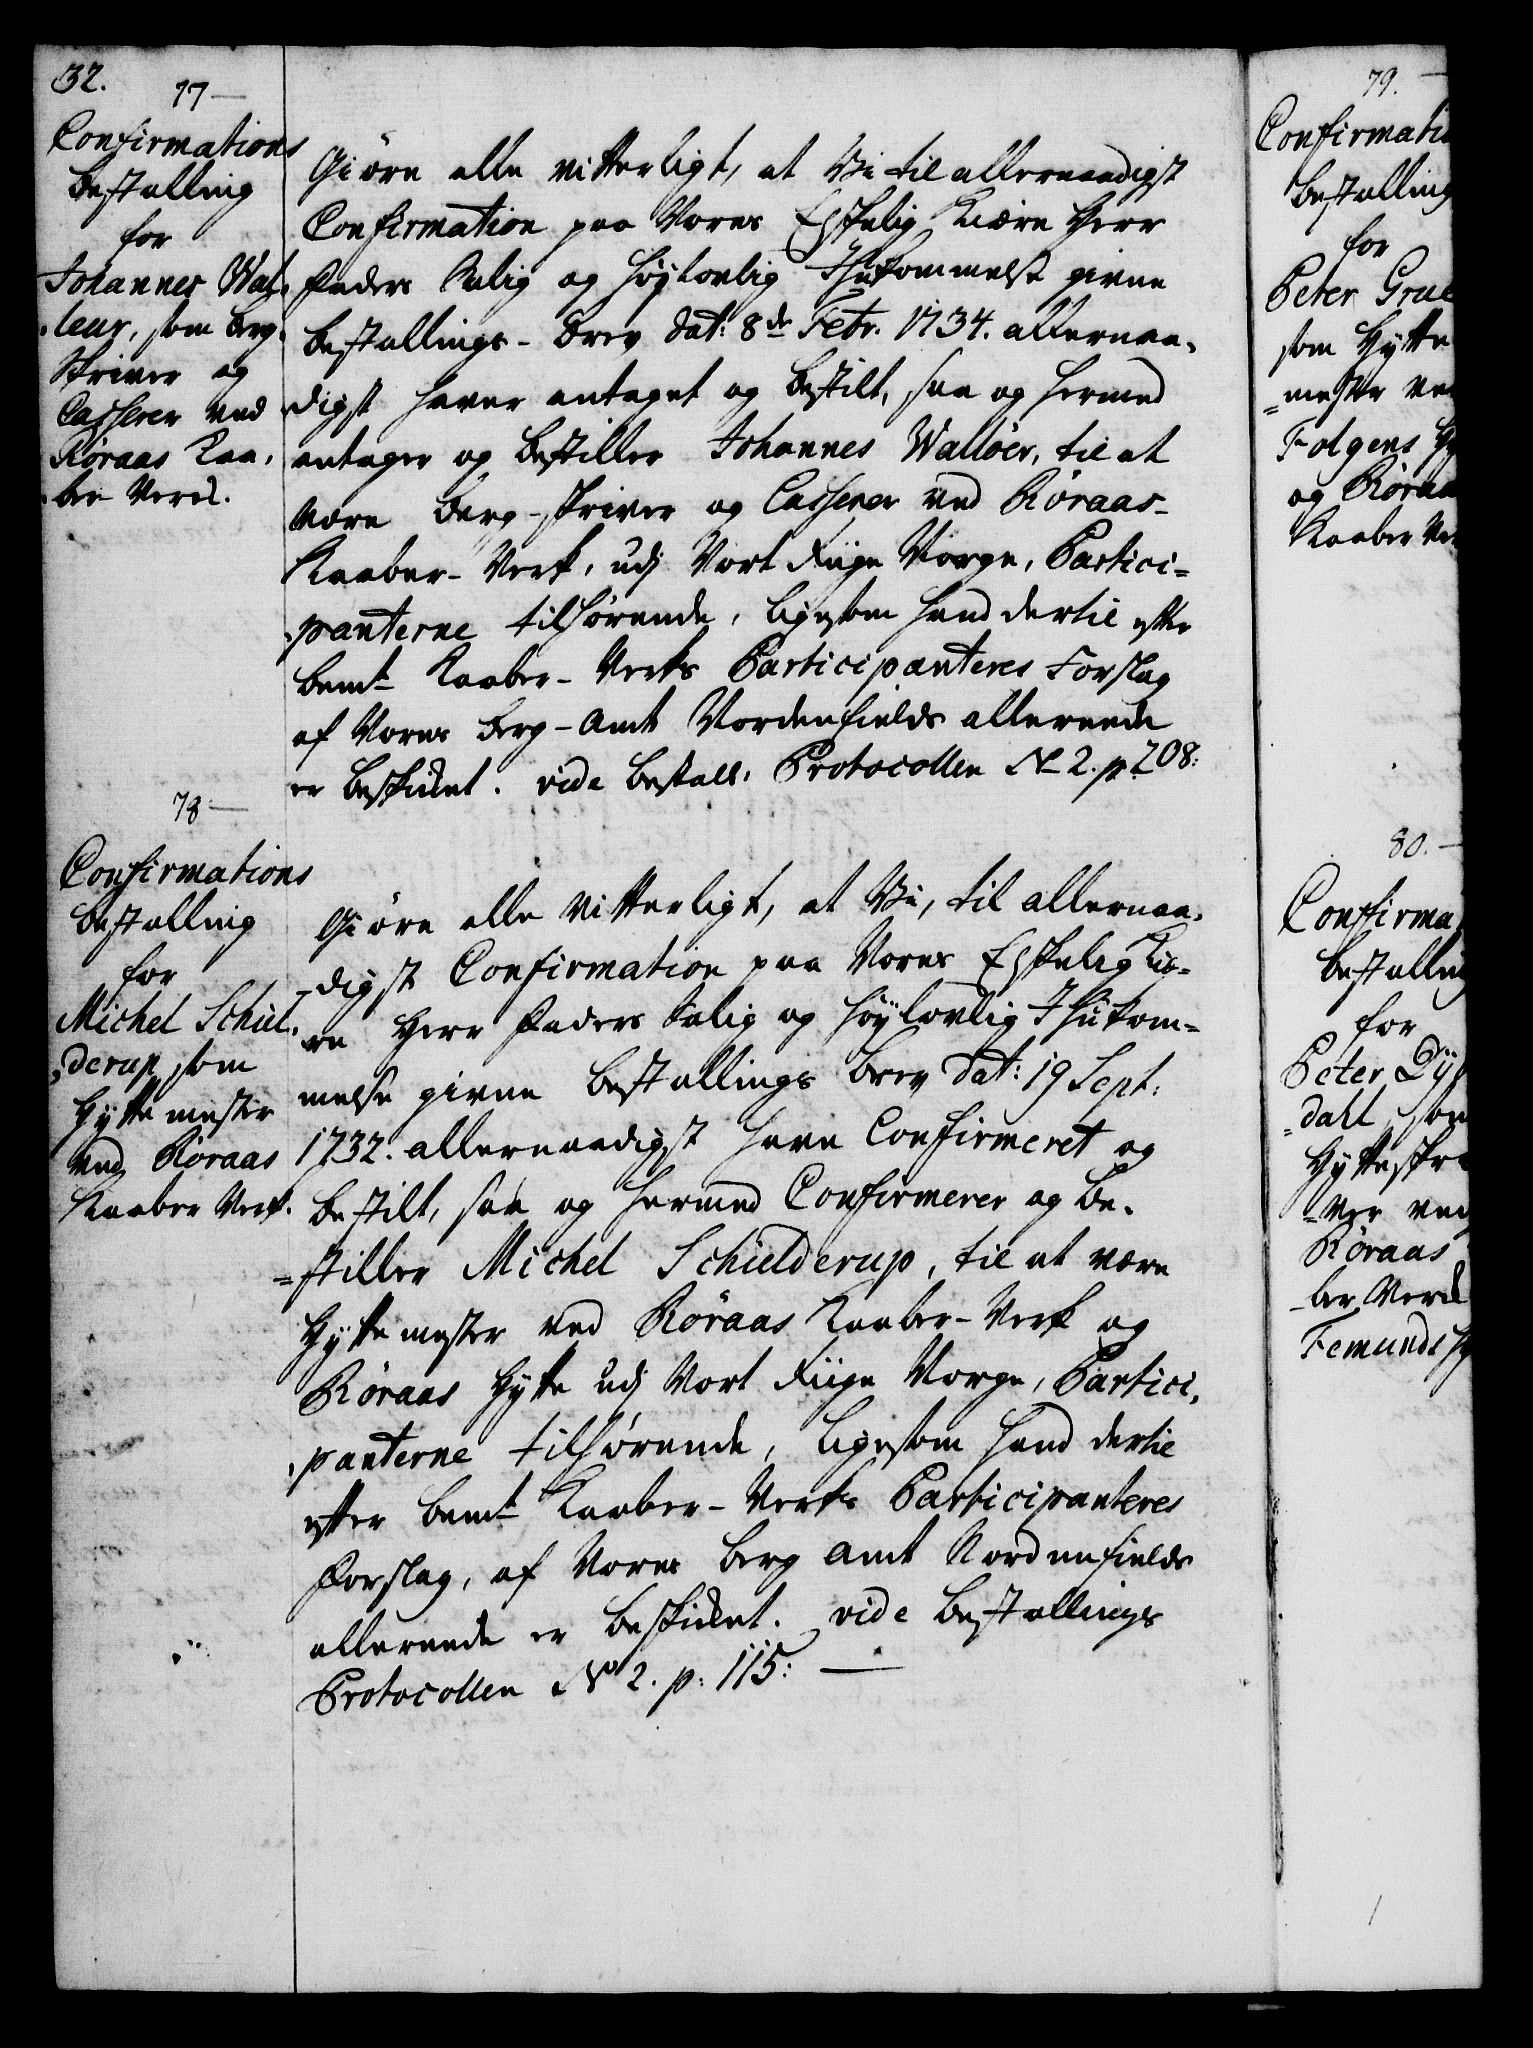 32.
77
Confirmations
Bestalling
for
Johannes Wal-
leur, som Berg-
Skriver og
Casserer ved
Røraas Kaa-
ber Verck.
Giøre alle vitterligt, at Vi til allernaadigst
Confirmation paa Vores Elskelig Kiære Herr
Faders Salig og Høylovlig Ihukommelse givne
Bestallings-Brev dat: 8de Febr. 1734. allernaa-
digst haver antaget og bestilt, saa og hermed
antager og bestiller Johannes Wallöer, til at
være Berg-skriver og Casserer ved Røraas-
Kaaber-Verk, udj Vort Riige Norge, Partici=
panterne tilhørende, ligesom hand dertil efter
bemte Kaaber-Verks Participanteres Forslag
af Vores Berg-Amt Nordenfields allereede
er beskicket. vide Bestall: Protocollen No 2. p 208:
78
Confirmations
Bestalling
for
Michel Schiel-
derup som
Hyttemester
ved Røraas
Kaaber Verk.
Giøre alle vitterligt, at Vi, til allernaa-
digst Confirmation paa Vores Elskelig Kiæ-
re Herr Faders Salig og Høylovlig Ihukom-
melse givne Bestallings Brev dat: 19 Sept:
1732. allernaadigst have Confirmeret og
bestilt, saa og hermed Confirmerer og be-
=stiller Michel Schielderup, til at være
Hyttemester ved Røraas Kaaber-Verk og
Røraas Hytte udj Vort Riige Norge, Partici-
panterne tilhørende, ligesom hand dertil
efter bemte Kaaber-Verks Participanteres
Forslag, af Vores Berg Amt Nordenfields
allereede er beskicket. vide Bestallings
Protocollen No 2. p: 115:
79.
Confirmatio
Bestalling
for
Peter Grue
som Hytte
=mester ved
Folgens Hy
og Røraas
Kaaber Ver
80.
Confirma
Bestalling
for
Peter Dy
=dahl, som
Hytteskri
=ver ved
Røraas
-ber Verck
Femunds Hy